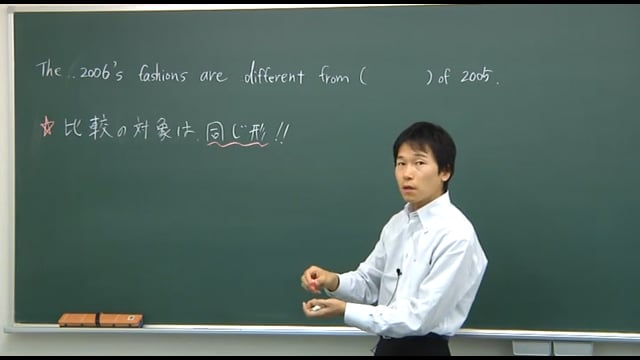 The 2006's fashions are different from (     ) of 2005.
☆ 比較の対象は、同じ形!!